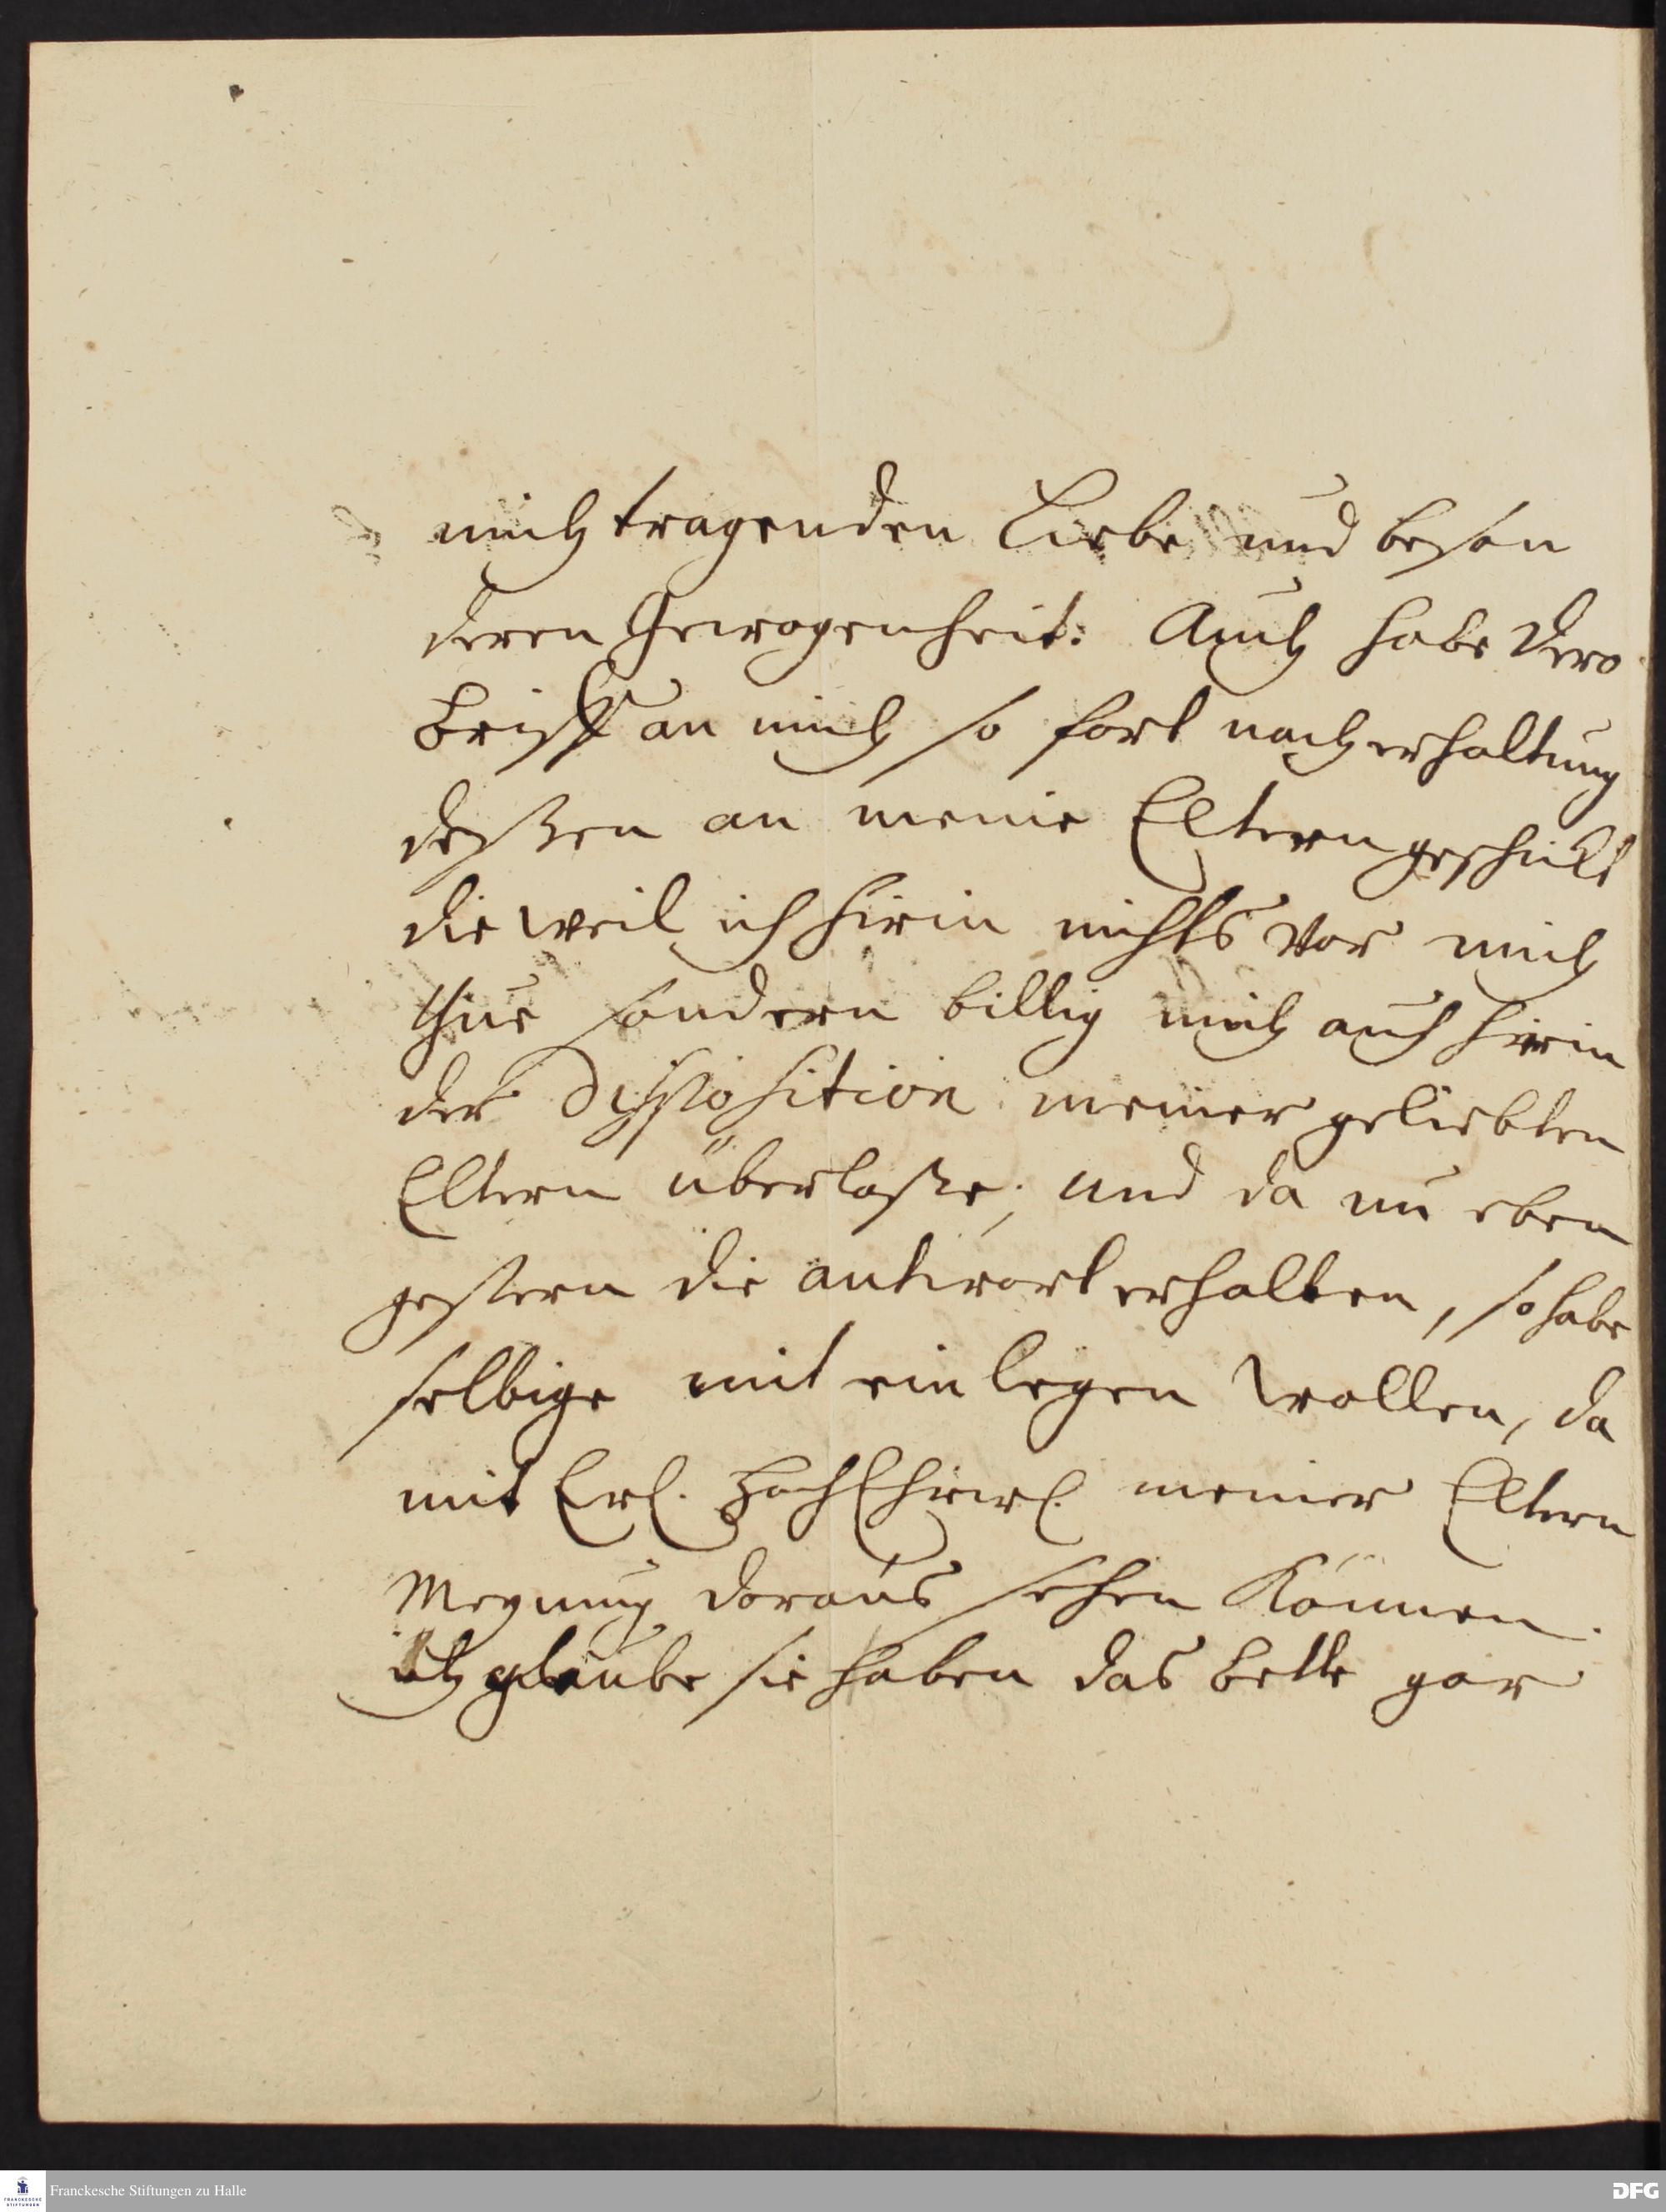 mich tragenden Liebe und beson
deren Gewogenheit: Auch habe dero
brieff an mich so fort nach erhaltung
deßen an meine Eltern geschickt
die weil ich hirin nichts vor mich
thue sondern billig mich auch hirin
der Disposition meiner geliebten
Eltern überlaße; und da nu eben
gestern die antwort erhalten, so habe
selbige mit ein legen wollen, da
mit HochEhrw. meiner Eltern
Meynung daraus sehen können.
ich glaube sie haben das bette gar
Franckesche Stiftungen zu Halle
FRANCKESCHE STIFTUNGEN
DFG